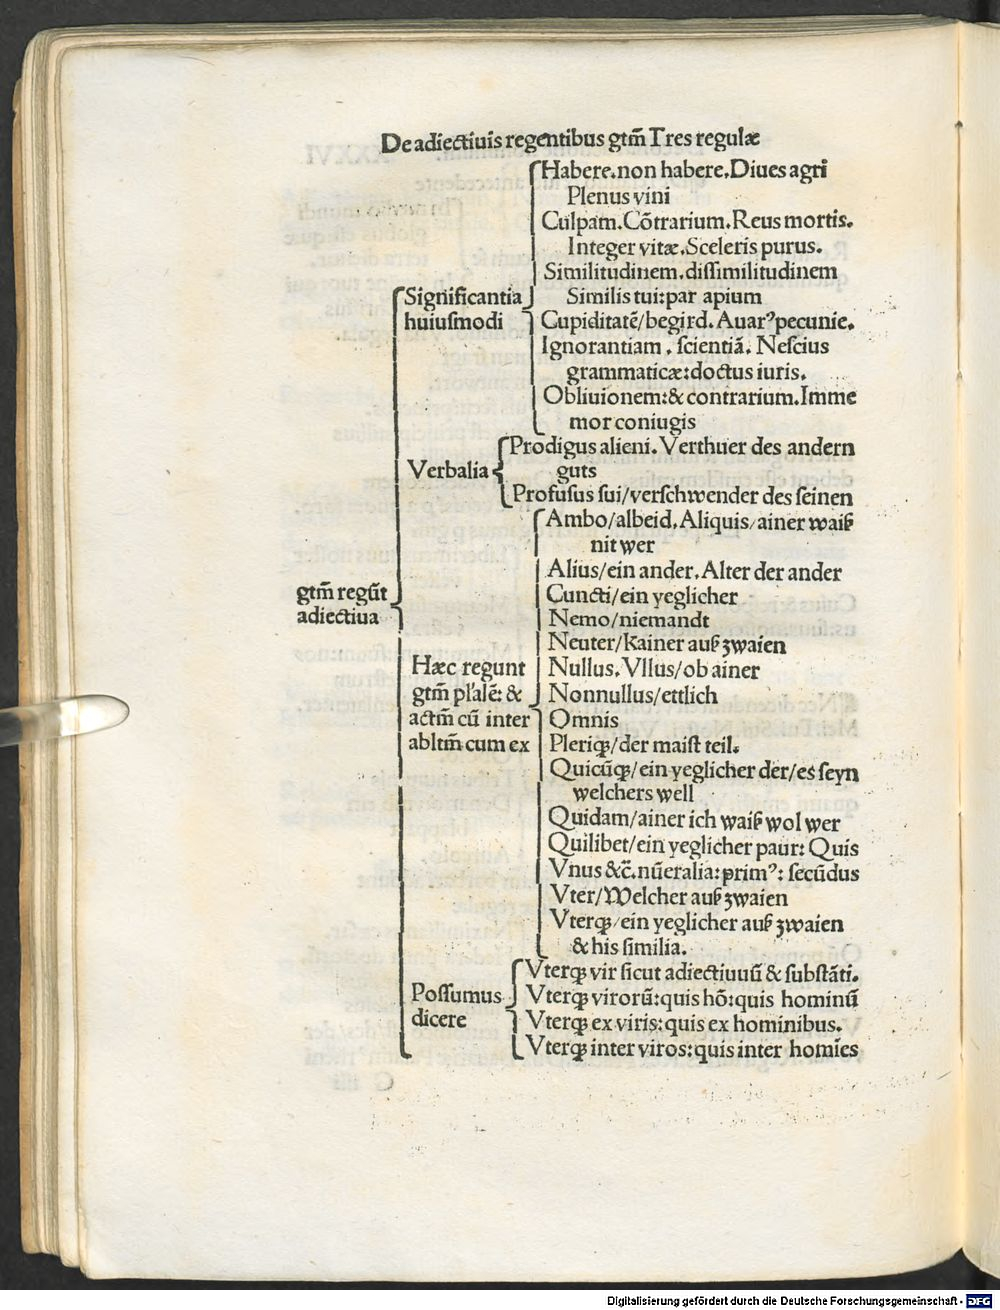 De adiectiuis regentibus gtm̄ Tres regulæ
Habere.non habere.Diues agri
Plenus vini
Culpam.Cōtrarium.Reus mortis.
Integer vitæ.Sceleris purus.
Similitudinem.dissimilitudinem
Significantia
Similis tui:par apium
huiusmodi
Cupiditatē/begird.Auarꝰpecunie.
Ignorantiam.scientiā.Nescius
grammaticæ:doctus iuris.
Obliuionem:& contrarium.Imme
mor coniugis
Prodigus alieni.Verthuer des andern
Verbalia
guts
Profusus sui/verschwender des seinen
Ambo/albeid.Aliquis/ainer waiß
nit wer
Alius/ein ander.Alter der ander
gtm̄ regūt
Cuncti/ein yeglicher
adiectiua
Nemo/niemandt
Neuter/kainer auß zwaien
Hæc regunt
Nullus.Vllus/ob ainer
gtm̄ pľalē: &
Nonnullus/ettlich
actm̄ cū inter
Omnis
abltm̄ cum ex
Pleriqꝫ/der maist teil.
Quicūqꝫ/ein yeglicher der/es seyn
welchers well
Quidam/ainer ich waiß wol wer
Quilibet/ein yeglicher paur: Quis
Vnus &c̄.nūeralia:primꝰ: secūdus
Vter/Welcher auß zwaien
Vterqꝫ/ein yeglicher auß zwaien
& his similia.
Vterqꝫ vir sicut adiectiuuū & substāti.
Possumus
Vterqꝫ virorū:quis hō:quis hominū
dicere
Vterqꝫ ex viris:quis ex hominibus.
Vterqꝫ inter viros:quis inter homīes
Digitalisierung gefördert durch die Deutsche Forschungsgemeinschaft - DFG